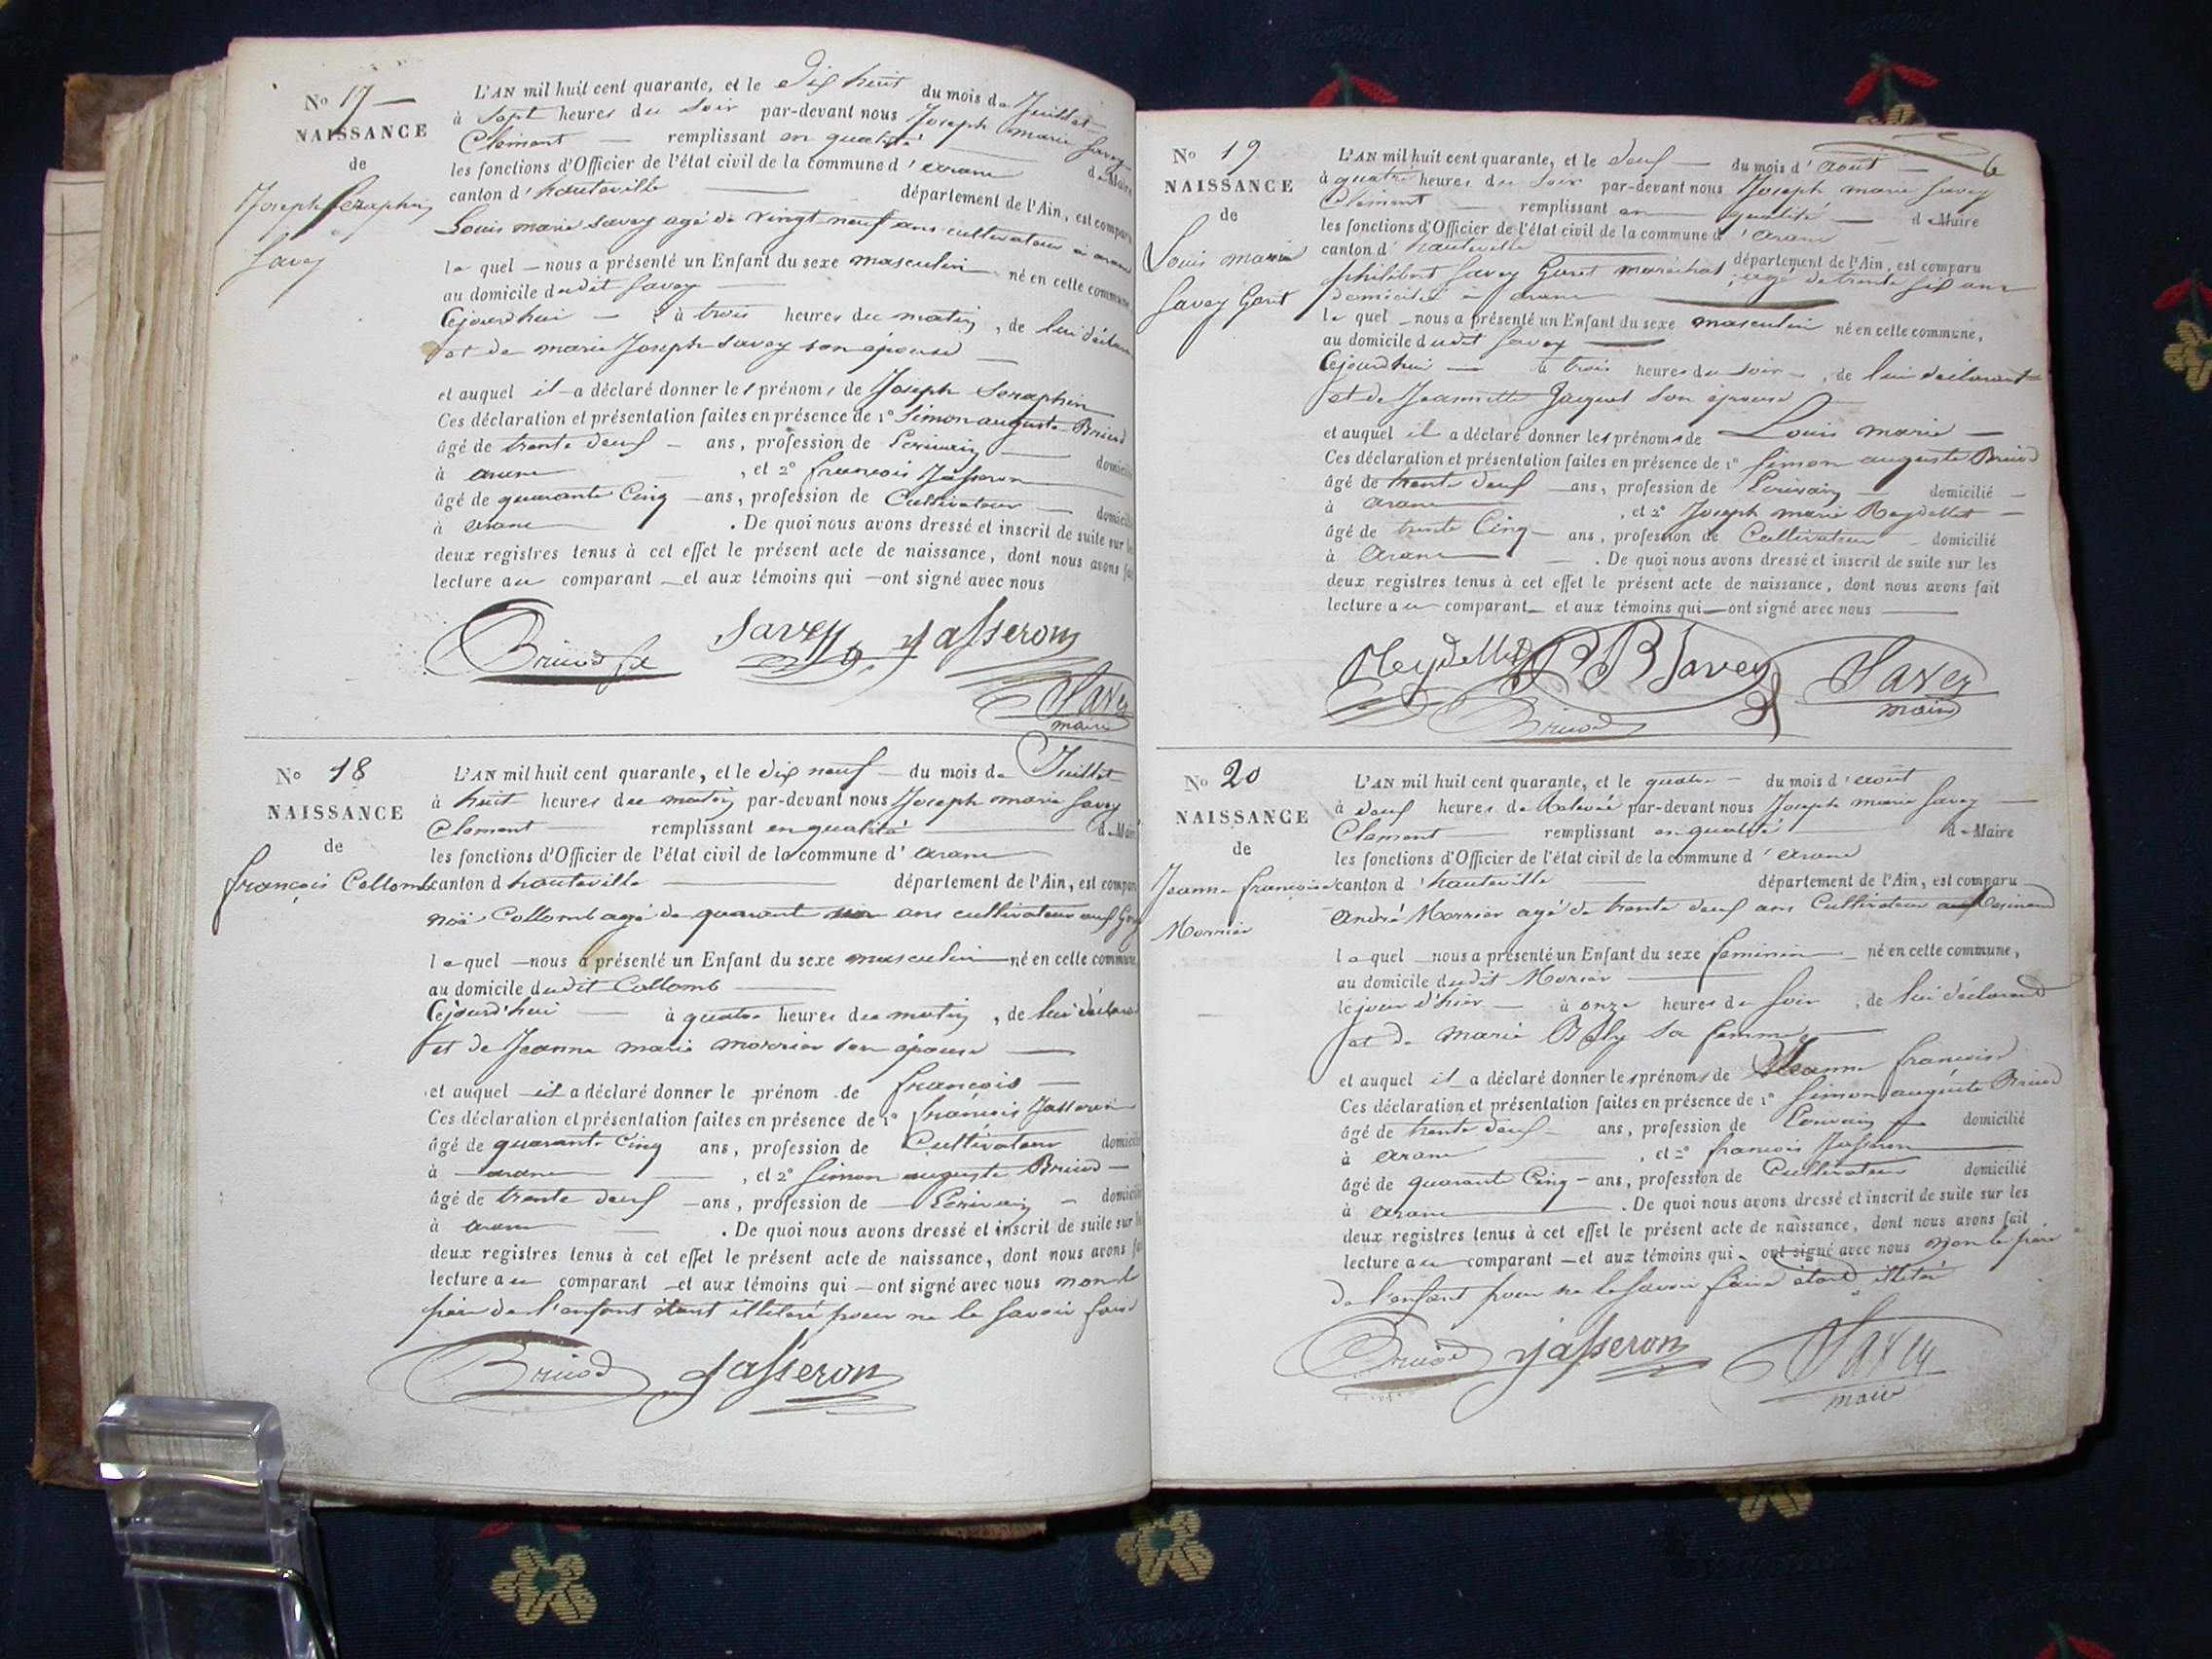 No 17
NAISSANCE
de
Joseph Séraphin
Savey
L'AN mil huit cent quarante, et le dix huit du mois de Juillet
à sept heures du soir par-devant nous Joseph marie Savey
Clément remplissant en qualité de Maire
les fonctions d'Officier de l'état civil de la commune d'arane
canton d'hauteville département de l'Ain, est comparu
Louis marie savey agé de vingt neuf ans cultivateur à arane
lequel nous a présenté un Enfant du sexe masculin né en cette commune
au domicile dudit Savey
Cejourd'hui à trois heures du matin, de lui déclarant
et de marie Joseph savey son épouse
et auquel il a déclaré donner les prénoms de Joseph Seraphin
Ces déclaration et présentation faites en présence de 1° Simon auguste Bruiod
âgé de trente deux ans, profession de Ecrivain domicilié
à arane, et 2° françois Jasseron
âgé de quarante Cinq ans, profession de Cultivateur domicilié
à arane. De quoi nous avons dressé et inscrit de suite sur les
deux registres tenus à cet effet le présent acte de naissance, dont nous avons fait
lecture au comparant et aux témoins qui ont signé avec nous
Savey Jasseron
Savey
maire
No 18
NAISSANCE
de
françois Collomb
L'AN mil huit cent quarante, et le dix neuf du mois de Juillet
à huit heures du matin par-devant nous Joseph marie Savey
Clement remplissant en qualité de Maire
les fonctions d'Officier de l'état civil de la commune d'arane
canton d hauteville département de l'Ain, est comparu
noë Collomb agé de quarante ans cultivateur
lequel nous a présenté un Enfant du sexe masculin né en cette commune,
au domicile dudit Collomb
Cejourd'hui à quatre heures du matin, de lui déclarant
et de Jeanne marie morrier son épouse
et auquel il a déclaré donner le prénom de françois
Ces déclaration et présentation faites en présence de 1° françois Jasseron
âgé de quarante Cinq ans, profession de Cultivateur domicilié
à arane, et 2° Simon auguste Bruiod
âgé de trente deux ans, profession de Ecrivain domicilié
à arane. De quoi nous avons dressé et inscrit de suite sur les
deux registres tenus à cet effet le présent acte de naissance, dont nous avons fait
lecture au comparant et aux témoins qui ont signé avec nous non le
père de l'enfant étant illiteré pour ne le savoir faire
Bruiod Jasseron
6
No 19
NAISSANCE
de
Louis marie
Savey Goret
L'AN mil huit cent quarante, et le deux du mois d'août
à quatre heures du soir par-devant nous Joseph marie Savey
Clément remplissant en qualité de Maire
les fonctions d'Officier de l'état civil de la commune d'arane
canton d'hauteville département de l'Ain, est comparu
philibert Savey Goret maréchal agé de trente six ans
domicilié à arane
lequel nous a présenté un Enfant du sexe masculin né en cette commune,
au domicile dudit Savey
Cejourd'hui à trois heures du soir, de lui déclarant
et de Jeannette Jacquet son épouse
et auquel il a déclaré donner les prénoms de Louis marie
Ces déclaration et présentation faites en présence de 1° Simon auguste Bruiod
âgé de trente deux ans, profession de Ecrivain domicilié
à arane, et 2° Joseph marie Reydellet
âgé de trente Cinq ans, profession de Cultivateur domicilié
à arane. De quoi nous avons dressé et inscrit de suite sur les
deux registres tenus à cet effet le présent acte de naissance, dont nous avons fait
lecture au comparant et aux témoins qui ont signé avec nous
Reydellet PB Savey Savey
Bruiod maire
No 20
NAISSANCE
de
Jeanne françoise
Morrier
L'AN mil huit cent quarante, et le quatre du mois d'août
à deux heures de Relevée par-devant nous Joseph marie Savey
Clement remplissant en qualité de Maire
les fonctions d'Officier de l'état civil de la commune d'arane
canton d'hauteville département de l'Ain, est comparu
André Morrier agé de trente deux ans Cultivateur
lequel nous a présenté un Enfant du sexe feminin né en cette commune,
au domicile dudit Morier
le jour d'hier à onze heures du soir, de lui déclarant
et de marie sa femme
et auquel il a déclaré donner les prénoms de Jeanne françoise
Ces déclaration et présentation faites en présence de 1° Simon auguste Bruiod
âgé de trente deux ans, profession de Ecrivain domicilié
à arane, et 2° françois Jasseron
âgé de quarante Cinq ans, profession de Cultivateur domicilié
à arane. De quoi nous avons dressé et inscrit de suite sur les
deux registres tenus à cet effet le présent acte de naissance, dont nous avons fait
lecture au comparant et aux témoins qui ont signé avec nous non le père
de l'enfant pour ne le savoir faire étant illiteré
Bruiod Jasseron Savey
maire